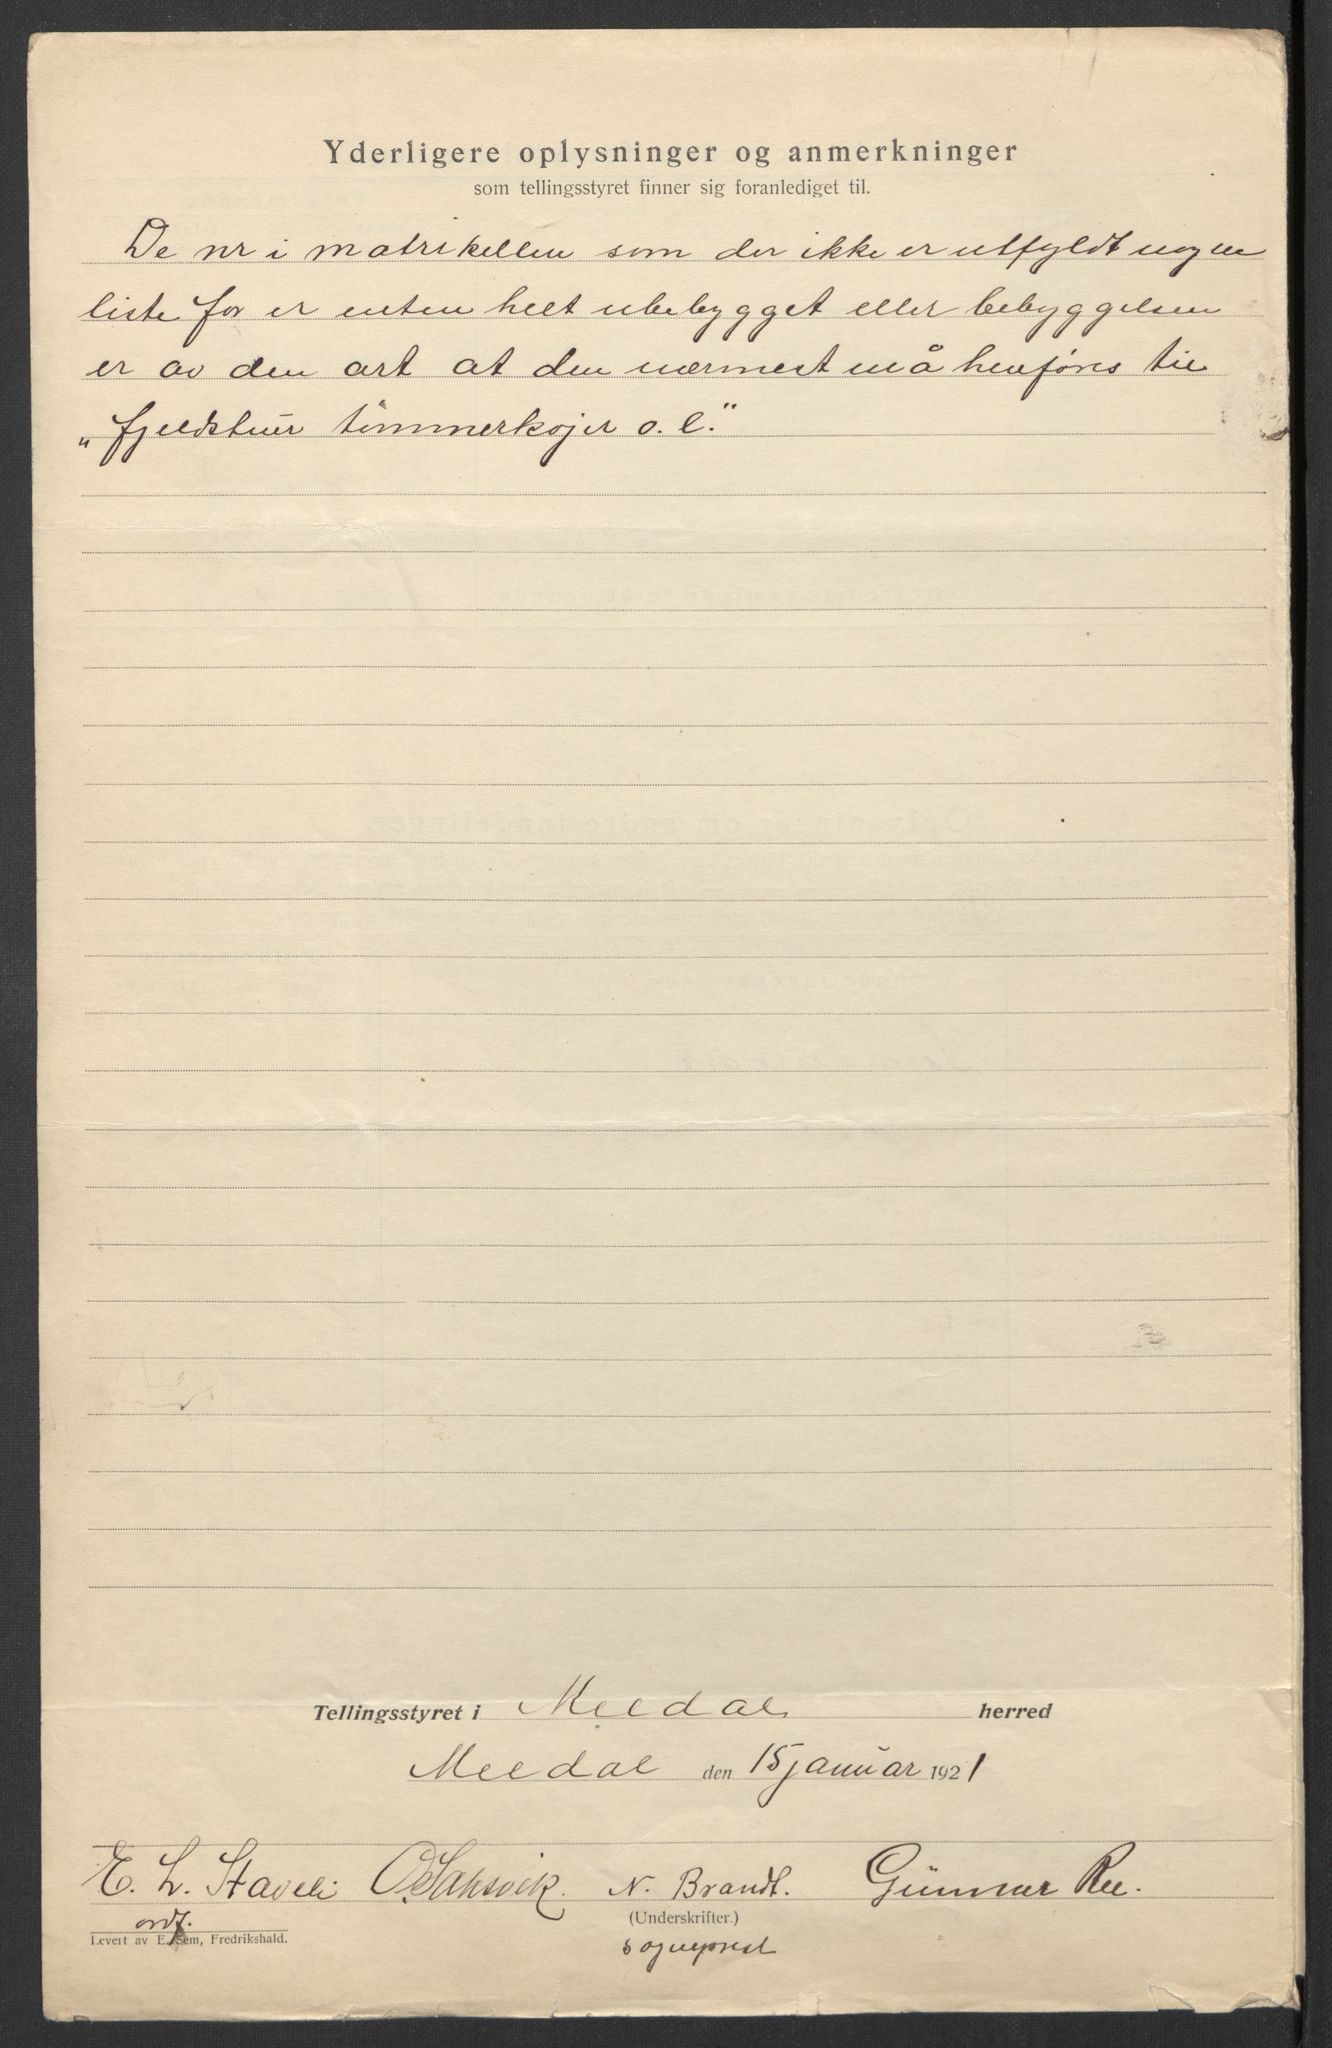 Yderligere oplysninger og anmerkninger
som tellingsstyret finner sig foranlediget til.
De nr i matrikellen som der ikke er utfyldt nogen
liste for er enten helt ubebygget eller bebyggelsen
er av den art at den nærmest må henføres til
„fjeldstuer tømmerkojer o. l."
Tellingsstyret i Meldal herred
Meldal den 15 januar 1921
E. L. Staveli O. Saksvik. N. Brandt. Gunnar Ree.
ordf. (Underskrifter.)
Levert av E. Sem, Fredrikshald.
sogneprest